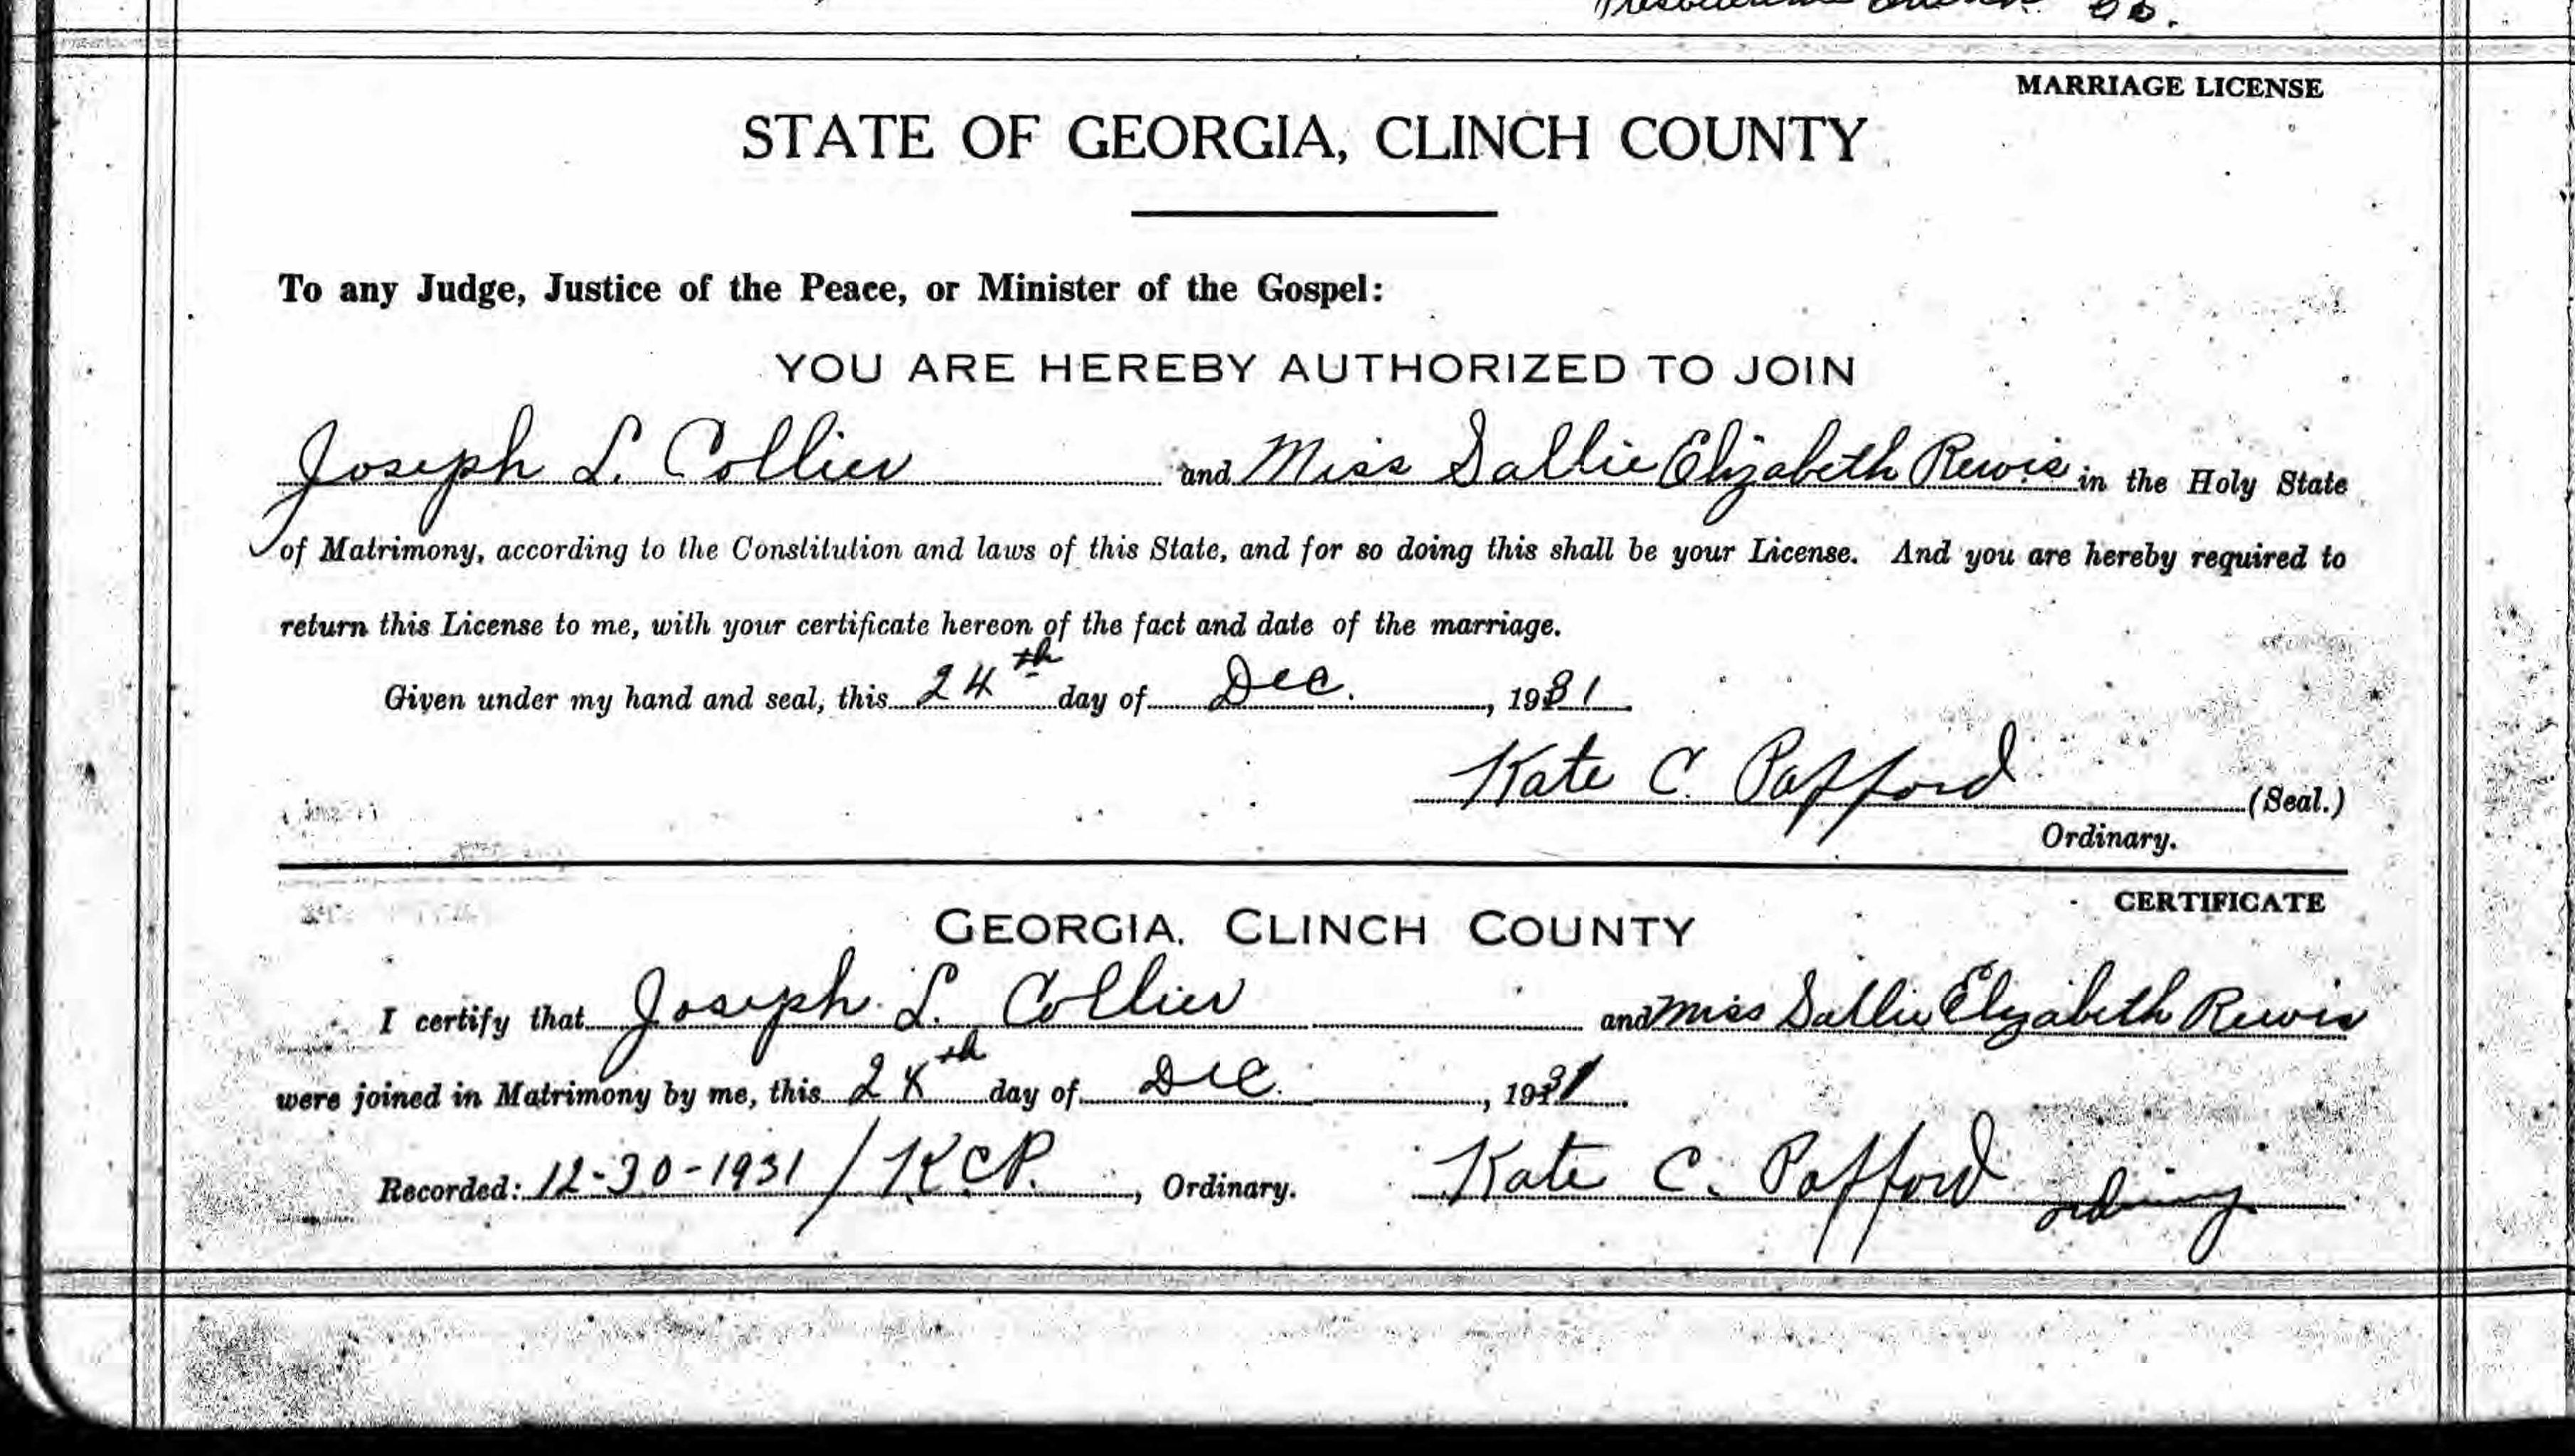 MARRIAGE LICENSE
STATE OF GEORGIA, CLINCH COUNTY
To any Judge, Justice of the Peace, or Minister of the Gospel:
YOU ARE HEREBY AUTHORIZED TO JOIN
Joseph L. Collier and Miss Sallie Elizabeth Rewis in the Holy State
of Matrimony, according to the Constitution and laws of this State, and for so doing this shall be your License. And you are hereby required to
return this License to me, with your certificate hereon of the fact and date of the marriage.
Given under my hand and seal, this 24th day of Dec. , 1931
Kate C. Pafford (Seal.)
Ordinary.
CERTIFICATE
GEORGIA, CLINCH COUNTY
I certify that Joseph L. Collier and Miss Sallie Elizabeth Rewis
were joined in Matrimony by me, this 24th day of Dec. , 1931
Recorded: 12-30-1931 / K.C.P. , Ordinary. Kate C. Pafford ordinary